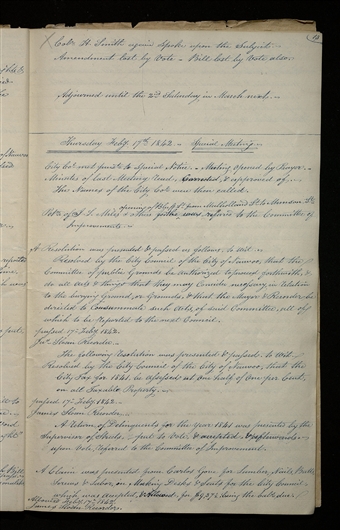 18
Col. H. Smith again spoke upon the Subject.
Amendment lost by Vote - Bill lost by Vote also.
Adjourned until the 2d Saturday in March next.
Thursday Feby. 17th 1842. Special Meeting.
City Col. met persuant to Special Notice. - Meeting opened by Prayer.
Minutes of last Meeting Read, Corrected, & approved of.
The Names of the City Col. were then called.
opening of St. from Mulholland St. to Munson St.
Petn. of L. Miles & others was referred to the Committee of
Improvements.
A Resolution was presented & passed as follows, to wit.
Resolved by the City Council of the City of Nauvoo, that the
Committee of public Grounds be authorized to proceed forthwith, &
do all acts & things that they may consider necessary in relation
to the burying Ground, or Grounds, & that the Mayor & Recorder be
directed to Consummate such acts, of said Committee, all of
which to be Reported to the next Council.
passed 17th Feby. 1842.
Jas. Sloan Recorder.
The following Resolution was presented & passed. to wit.
Resolved by the City Council of the City of Nauvoo, that the
City Tax for 1841, be assessed at one half of One per Cent,
on all Taxable Property.
passed 17th Feby. 1842.
James Sloan Recorder.
A Return of Delinquents for the Year 1841 was presented by the
Supervisor of Streets, put to Vote, & accepted, & afterwards
upon Vote, Referred to the Committee of Improvement.
A Claim was presented from Carlos Gove for Lumber, Nails, Butts,
Screws & Labor, in Making Desks & Seats for the City Council
which was accepted, & Allowed, for $9,37½ being the half due.
Adjourned Feby. 17th 1842.
James Sloan Recorder.